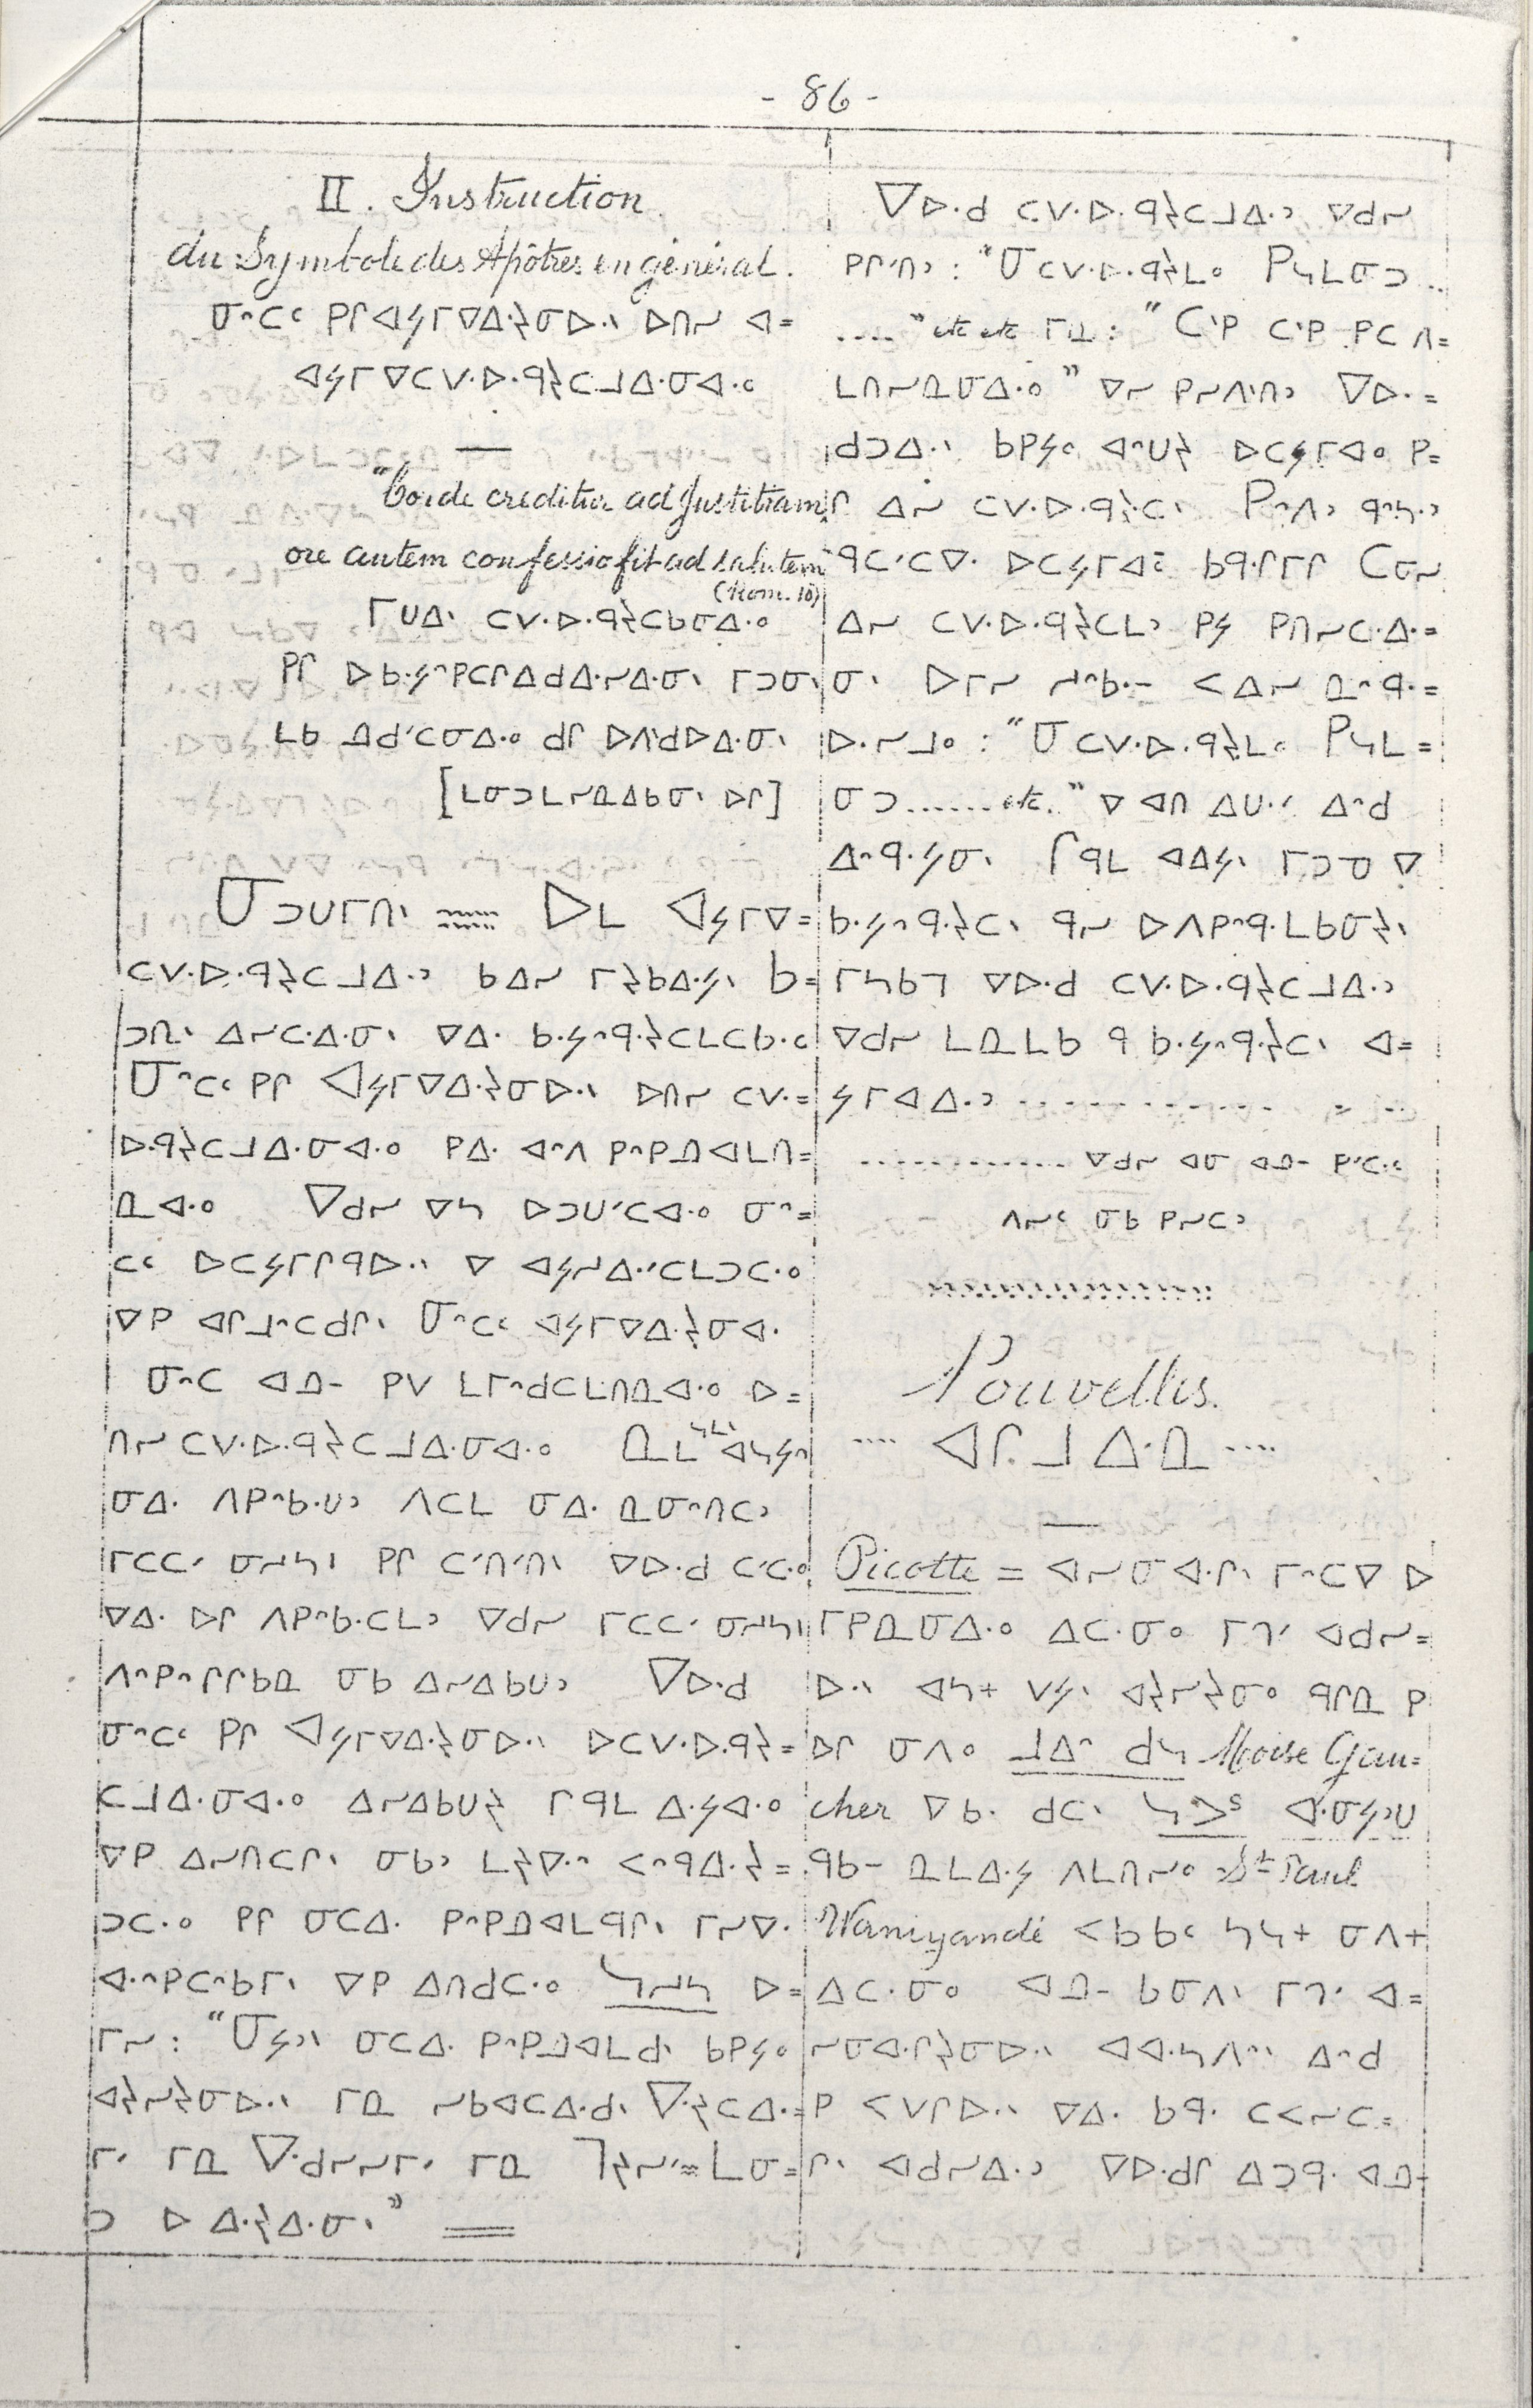 - 86 -
II. Instruction
du Symbole des Apôtres en général.
ᓂᐢᑕᑦ ᑭᒋᐊᔭᒥᐁᐃᐧᔨᓂᐅᐧᐠ ᐅᑎᓯ ᐊ=
ᐊᔭᒥᐁᑕᐯᐧᐅᐧᑫᔨᑕᒧᐃᐧᓂᐊᐧᐤ
"Corde creditur ad Justitiam
ore autem confessio fit ad salutem
(Rom. 10)
ᒥᑌᐃᐠ ᑕᐯᐧᐅᐧᑫᔨᑕᑲᓂᐃᐧᐤ
ᑭᒋ ᐅᑲᐧᔭᐢᑭᑕᒋᐃᑯᐃᐧᓯᐃᐧᓂᐠ ᒥᑐᓂᐠ
ᒪᑲ ᓄᑯᐟᑕᓂᐃᐧᐤ ᑯᒋ ᐅᐱᐟᑯᐅᐃᐧᓂᐠ
[ᒪᓂᑐᒪᓯᓇᐃᑲᓂᐠ ᐅᒋ]
ᓂᑐᑌᒥᑎᐠ ᐅᒪ ᐊᔭᒥᐁ=
ᑕᐯᐧᐅᐧᑫᔨᑕᒧᐃᐧᐣ ᑲᐃᓯ ᒥᔨᑲᐃᐧᔭᐠ ᑲ=
ᑐᑎᐠ ᐃᓯᑕᐧᐃᐧᓂᐠ ᐁᐃᐧ ᑲᐧᔭᐢᑫᐧᔨᑕᒪᑕᑲᐧᑦ
ᓂᐢᑕᑦ ᑭᒋ ᐊᔭᒥᐁᐃᐧᔨᓂᐅᐧᐠ ᐅᑎᓯ ᑕᐯᐧ=
ᐅᐧᑫᔨᑕᒧᐃᐧᓂᐊᐧᐤ ᑭᐃᐧ ᐊᐢᐱ ᑭᐢᑭᓄᐊᒪᑎ=
ᓇᐊᐧᐤ ᐁᑯᓯ ᐁᓴ ᐅᑐᑌᐟᑕᐊᐧᐤ ᓂᐢ=
ᑕᑦ ᐅᑕᔭᒥᒋᑫᐅᐧᐠ ᐁ ᐊᔭᓱᐃᐧᐟᑕᒪᑐᑕᐧᐤ
ᐁᑭ ᐊᒋᒧᐢᑕᑯᒋᐠ ᓂᐢᑕᑦ ᐊᔭᒥᐁᐃᐧᔨᓂᐊᐧ
ᓂᐢᑕ ᐊᓄᐨ ᑭᐯ ᒪᒥᐢᑯᑕᒪᑎᓇᐊᐧᐤ ᐅ=
ᑎᓯ ᑕᐯᐧᐅᐧᑫᔨᑕᒧᐃᐧᓂᐊᐧᐤ
ᓂᐃᐧ ᐱᑭᐢᑲᐧᑌᐣ ᐱᑕᒪ ᓂᐃᐧ ᓇᓂᐢᑎᑕᐣ
ᒥᑕᑕᐟ ᓂᓱᓴᐠ ᑭᒋ ᑕᐟᑎᐟᑎᐠ ᐁᐅᐧᑯ ᑕᐟᑕᐧᐤ
ᐁᐃᐧ ᐅᒋ ᐱᑭᐢᑲᐧᑕᒪᐣ ᐁᑯᓯ ᒥᑕᑕᐟ ᓂᓱᓴᐠ
ᐱᐢᑭᐢᒋᒋᑲᓇ ᓂᑲ ᐃᓯᐃᑲᑌᐣ ᐁᐅᐧᑯ
ᓂᐢᑕᑦ ᑭᒋ ᐊᔭᒥᐁᐃᐧᔨᓂᐅᐧᐠ ᐅᑕᐯᐧᐅᐧᑫᔨ=
ᑕᒧᐃᐧᓂᐊᐧᐤ ᐃᓯᐃᑲᑌᔨ ᒥᑫᒪ ᐃᐧᔭᐊᐧᐤ
ᐁᑭ ᐃᓯᑎᑕᒋᐠ ᓂᑲᐣ ᒪᔨᐁᐧᐢ ᐸᐢᑫᐃᐧᔨ=
ᑐᑕᐧᐤ ᑭᒋ ᓂᑕᐃᐧ ᑭᐢᑭᓄᐊᒪᑫᒋᐠ ᒥᓯᐁᐧ
ᐊᐧᐢᑭᑕᐢᑲᒥᐠ ᐁᑭ ᐃᑎᑯᑕᐧᐤ ᓴᓱᓴ ᐅ=
ᒥᓯ : "ᓂᔭᐣᐠ ᓂᑕᐃᐧ ᑭᐢᑭᓄᐊᒪᑯᐠ ᑲᑭᔭᐤ
ᐊᔨᓯᔨᓂᐅᐧᐠ ᒥᓇ ᓯᑲᐊᑕᐃᐧᑯᐠ ᐁᐧᔨᑕᐃᐧ=
ᒥᐟ ᒥᓇ ᐁᐧᑯᓯᓯᒥᐟ ᒥᓇ ᒣᔨᓯᐟ ᒪᓂ=
ᑐ ᐅ ᐃᐧᔨᐃᐧᓂᐠ"
ᐁᐅᐧᑯ ᑕᐯᐧᐅᐧᑫᔨᑕᒧᐃᐧᐣ ᐁᑯᓯ
ᑭᒋᐟᑎᐣ : "ᓂᑕᐯᐧᐅᐧᑫᔨᒪᐤ ᑭᓴᒪᓂᑐ ..
...." etc etc ᒥᓇ : "ᑕᐠᑭ ᑕᐠᑭ ᑭᑕ ᑎ=
ᒪᑎᓯᓇᓂᐃᐧᐤ" ᐁᓯ ᑭᓯᐱᐟᑎᐣ ᐁᐅᐧ=
ᑯᑐᐃᐧᐠ ᑲᑭᔭᐤ ᐊᐢᑌᔨ ᐅᑕᔭᒥᐊᐤ ᑭ=
ᒋ ᐃᓯ ᑕᐯᐧᐅᐧᑫᔨᑕᐠ ᑭᐢᐱᐣ ᑫᐢᓴᐧᐣ
ᑫᑕᐟᑕᐁᐧ ᐅᑕᔭᒥᐊᐤ ᑲᑫᐧᒋᒥᒋ ᑕᓂᓯ
ᐃᓯ ᑕᐯᐧᐅᐧᑫᔨᑕᒪᐣ ᑭᔭ ᑭᑎᓯᑕᐧᐃᐧ=
ᓂᐠ ᐅᒥᓯ ᓱᐢᑲᐧᐨ ᐸ ᐃᓯ ᓇᐢᑫᐧ=
ᐅᐧᓯᒧᐤ : "ᓂ ᑕᐯᐧᐅᐧᑫᔨᒪᐤ ᑭᓴᒪ=
ᓂᑐ.......etc." ᐁ ᐊᑎ ᐃᑌᐧᐟ ᐃᐢᑯ
ᐃᐢᑫᐧᔭᓂᐠ ᒋᑫᒪ ᐊᐃᔭᐠ ᒥᑐᓀ ᐁ
ᑲᐧᔭᐢᑫᐧᔨᑕᐠ ᑫᓯ ᐅᐱᑭᐢᑫᐧᒪᑲᓂᔨᐠ
ᒥᓴᑲᒣ ᐁᐅᐧᑯ ᑕᐯᐧᐅᐧᑫᔨᑕᒧᐃᐧᐣ
ᐁᑯᓯ ᒪᓇᒪᑲ ᑫ ᑲᐧᔭᐢᑫᐧᔨᑕᐠ ᐊ=
ᔭᒥᐊᐃᐧᐣ ..............
.............. ᐁᑯᓯ ᐊᓂ ᐊᓄᐨ ᑭᐟᑕᐧᑦ
ᐱᓯᑦ ᓂᑲ ᑭᓯᑕᐣ
Nouvelles.
.... ᐊᒋᒧᐃᐧᓇ ....
Picotte = ᐊᓯᓂᐊᐧᒋᐠ ᒥᐢᑕᐁ ᐅ
ᒥᑭᓇᓂᐃᐧᐤ ᐃᑕᐧᓂᐤ ᒥᒉᐟ ᐊᑯᓯ=
ᐅᐧᐠ ᐊᓴᐩ ᐯᔭᐠ ᐊᔨᓯᔨᓂᐤ ᑫᒋᓇ ᑭ
ᐅᒋ ᓂᐱᐤ ᒧᐃᐢ ᑯᓴ Moïse Gau=
cher ᐁᑲᐧ ᑯᑕᐠ ᓴᐣᐳˢ ᐊᐧᓂᔭᐣᑌ
ᑫᑲᐨ ᓇᒪᐃᐧᔭ ᐱᒪᑎᓯᐤ St Paul
Waniyandé ᐸᑲᑲᑦ ᓴᓴᐩ ᓂᐱᐩ
ᐃᑕᐧᓂᐤ ᐊᓄᐨ ᑲᓂᐱᐠ ᒥᒉᐟ ᐊ=
ᓯᓂᐊᐧᒋᔨᓂᐅᐧᐠ ᐊᐊᐧᓴᐱᐢᐠ ᐃᐢᑯ
ᑭ ᐸᐯᒋᐅᐧᐠ ᐁᐃᐧ ᑲᑫᐧ ᑕᐸᓯᑕ=
ᒋᐠ ᐊᑯᓯᐃᐧᐣ ᐁᐅᐧᑯᒋ ᐃᑐᑫᐧ ᐊᓄᐨ